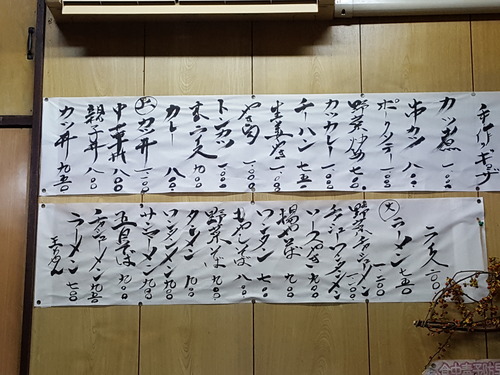 手作りギョーザ
カツ煮 一、一〇〇
串カツ 一、〇〇〇
ポークソテー 一、〇〇〇
野菜炒め 七〇〇
カツカレー 一、〇〇〇
チャーハン 七五〇
生姜やき 一、〇〇〇
やき肉 一、〇〇〇
トンカツ 一、〇〇〇
カレー 八〇〇
上カツ丼 一、二〇〇
中華丼 八〇〇
親子丼 八〇〇
カツ丼 九五〇
大 ラーメン 七五〇
野菜チャーシューメン 一、二〇〇
チャーシューワンタンメン
ソースやきそば 九〇〇
揚そば 九〇〇
ワンタン 七〇〇
もやしそば 八〇〇
野菜そば 九〇〇
タンメン 九〇〇
ワンタンメン 九〇〇
サンマーメン 九〇〇
五目そば 九〇〇
チャーシューメン 九五〇
ラーメン 七〇〇